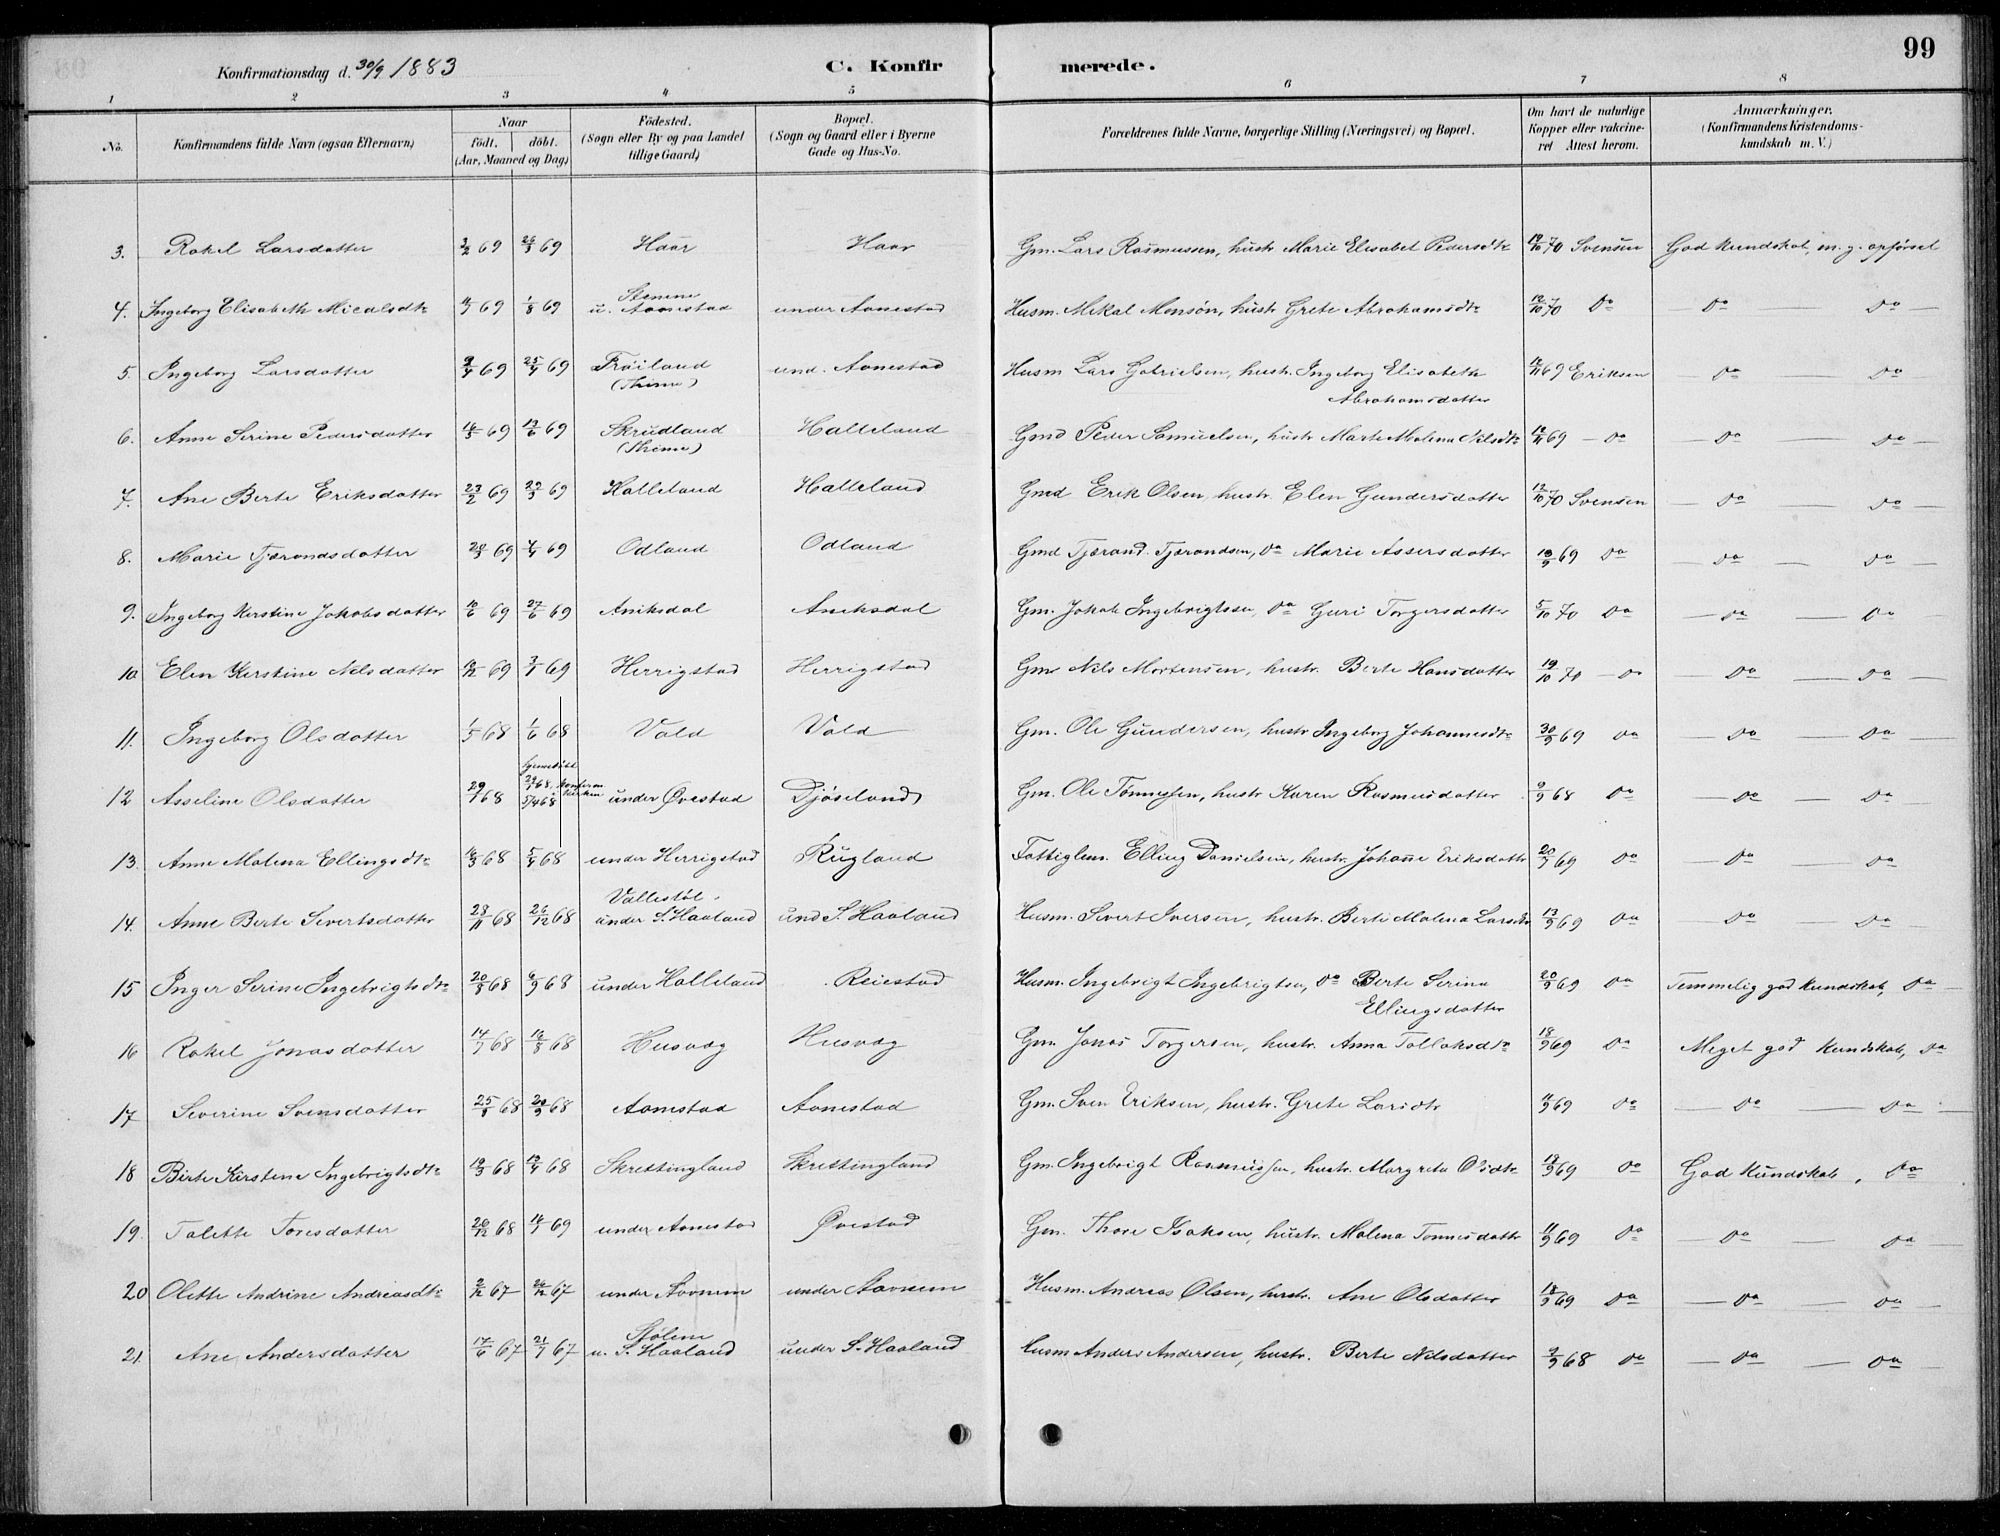 99
Konfirmationsdag d. 30/9 1883 C. Konfir merede.
1 2 3 4 5 6 7 8
No. Konfirmandens fulde Navn (ogsaa Efternavn) Naar födt. döbt. (Aar, Maaned og Dag) Födested. (Sogn eller By og paa Landet tillige Gaard) Bopæl. (Sogn og Gaard eller i Byerne Gade og Hus-No. Forældrenes fulde Navne, borgerlige Stilling (Næringsvei) og Bopæl. Om havt de naturlige Kopper eller vakcineret Attest herom. Anmærkninger. (Konfirmandens Kristendomskundskab m. V.)
3. Rakel Larsdatter 3/2 69 26/3 69 Haar Haar Gm. Lars Rasmussen, hustr Marie Elisabet Pedersdtr 19/10 70 Svensen God kundskab, m. g. opförsel
4. Ingeborg Elisabeth Micalsdtr 69 1/8 69 Stemene u. Aanestad under Aanestad Husm. Mikal Monsön, hustr Grete Abrahamsdtr 12/10 70 Do — Do — Do —
5. Ingeborg Larsdatter 9/4 69 25/4 69 Fröiland (Thime) und. Aanestad Husm Lars Gabrielsen, hustr. Ingeborg Elisabeth Abrahamsdatter 12/11 69 Eriksen — Do — Do
6. Anne Serine Pedersdatter 16/5 69 13/6 69 Skrudland (Thime) Halleland Gmd Peder Samuelsen, hustr Marte Malena Nilsdtr 12/11 69 — Do — Do — Do —
7. Ane Berte Eriksdatter 23/2 69 29/3 69 Halleland Halleland Gmd Erik Olsen, hustr. Elen Gundersdatter 12/10 70 Svensen — Do — Do —
8. Marie Tjærandsdatter 20/3 69 4/4 69 Odland Odland Gmd Tjærand Tjærandsen, Do Marie Assersdatter 13/9 69 Do — Do — Do
9. Ingeborg Kerstine Jakobsdatter 10/6 69 27/6 69 Aniksdal Aniksdal Gm. Jakob Ingebrigtsen, Do Guri Torgersdatter 5/10 70 Do — Do — Do
10 Elen Kerstine Nilsdatter 69 3/1 69 Herrigstad Herrigstad Gm Nils Mortensen, hustr. Berte Hansdatter 19/10 70 — Do — Do — Do —
11. Ingeborg Olsdatter 1/5 68 1/6 68 Vold Vold Gm. Ole Gundersen, hustr Ingeborg Johannesdtr 30/9 69 Do — Do — Do
12 Asseline Olsdatter 29/1 68 hjemmedöbt 29/1 68, konfirm i kirken 5/4 68 under Övestad Djöseland Gm. Ole Tönnesen, hustr Karen Rasmusdatter 9/9 68 Do — Do — Do
13. Anne Malena Ellingsdtr 16/3 68 5/4 68 under Herrigstad Rugland Fattiglem. Elling Danielsen, hustr. Johanne Eriksdattr 20/9 69 Do — Do — Do
14. Anne Berte Sivertsdatter 28/11 68 26/12 68 Vallestöl under S. Haaland und S. Haaland Husm. Sivert Iversen, hustr. Berte Malena Larsdtr 13/9 69 Do — Do — Do —
15 Inger Serine Ingebrigtsdtr 20/8 68 6/9 68 under Halleland Reiestad Husm. Ingebrigt Ingebrigtsen, Do Berte Serina Ellingsdatter 20/9 69 Do Temmelig god kundskab, Do —
16 Rakel Jonasdatter 14/7 68 16/8 68 Husvæg Husvæg Gm. Jonas Torgersen, hustr. Anna Tollaksdtr 18/9 69 Do Meget god kundskab, Do
17 Severine Svensdatter 25/8 68 20/9 68 Aanestad Aanestad Gm. Sven Eriksen, hustr. Grete Larsdtr 11/9 69 Do — Do — Do —
18 Birte Kirstine Ingebrigtsdtr 19/3 68 13/4 68 Skrettingland Skrettingland Gm. Ingebrigt Rasmussen, hustr. Margrete Olsdtr 13/9 69 Do God kundskab, Do
19. Talette Toresdatter 20/12 68 69 under Aanestad Övestad Gm. Thore Isaksen, hustr. Malena Tönnesdattr 11/9 69 Do — Do — Do
20 Olette Andrine Andreasdtr 2/12 67 26/12 67 under Stavnem under Stavnem Husm. Andreas Olsen, hustr. Ane Olsdatter 18/9 69 Do — Do — Do —
21. Ane Andersdatter 17/6 67 21/7 67 Stölene u. S. Haaland under S. Haaland Husm Anders Andersen, hustr. Berte Nilsdatter 9/9 68 Do — Do — Do —